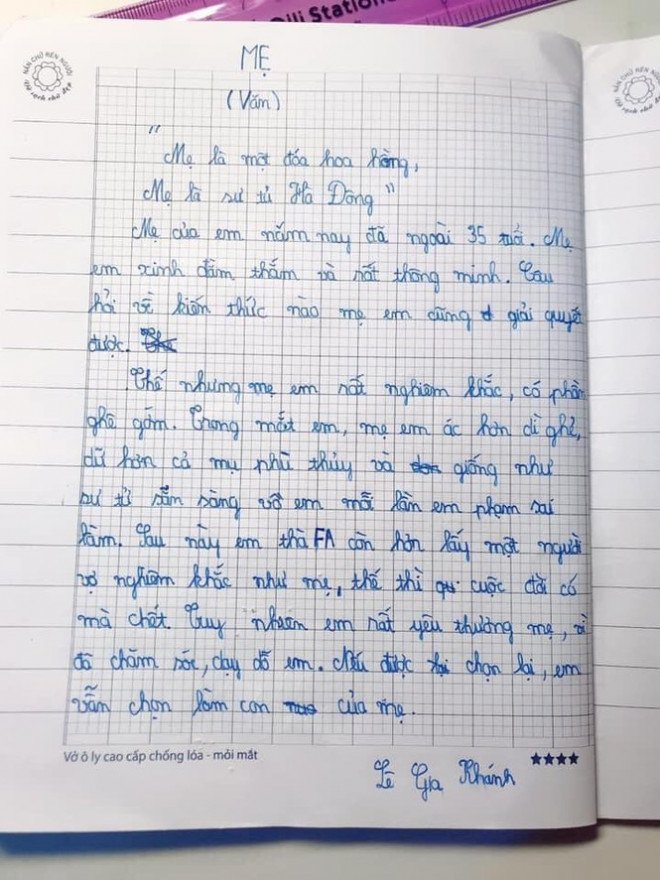 Olli Station
NẮN CHỮ RÈN NGƯỜI
Vở sạch chữ đẹp
NẮN CHỮ RÈN NGƯỜI
Vở sạch chữ đẹp
MẸ
(Văn)
"
Mẹ là một đóa hoa hồng,
Mẹ là sư tử Hà Đông"
Mẹ của em năm nay đã ngoài 35 tuổi. Mẹ
em xinh đằm thắm và rất thông minh. Câu
hỏi về kiến thức nào mẹ em cũng giải quyết
được.
Thế nhưng mẹ em rất nghiêm khắc, có phần
ghê gớm. Trong mắt em, mẹ em ác hơn dì ghẻ,
dữ hơn cả mụ phù thủy và giống như
sư tử sẵn sàng vồ em mỗi lần em phạm sai
lầm. Sau này em thà FA còn hơn lấy một người
vợ nghiêm khắc như mẹ, thế thì cuộc đời có
mà chết. Tuy nhiên em rất yêu thương mẹ, vì
đã chăm sóc, dạy dỗ em. Nếu được chọn lại, em
vẫn chọn làm con của mẹ.
Vở ô ly cao cấp chống lóa - mỏi mắt
Lê Gia Khánh